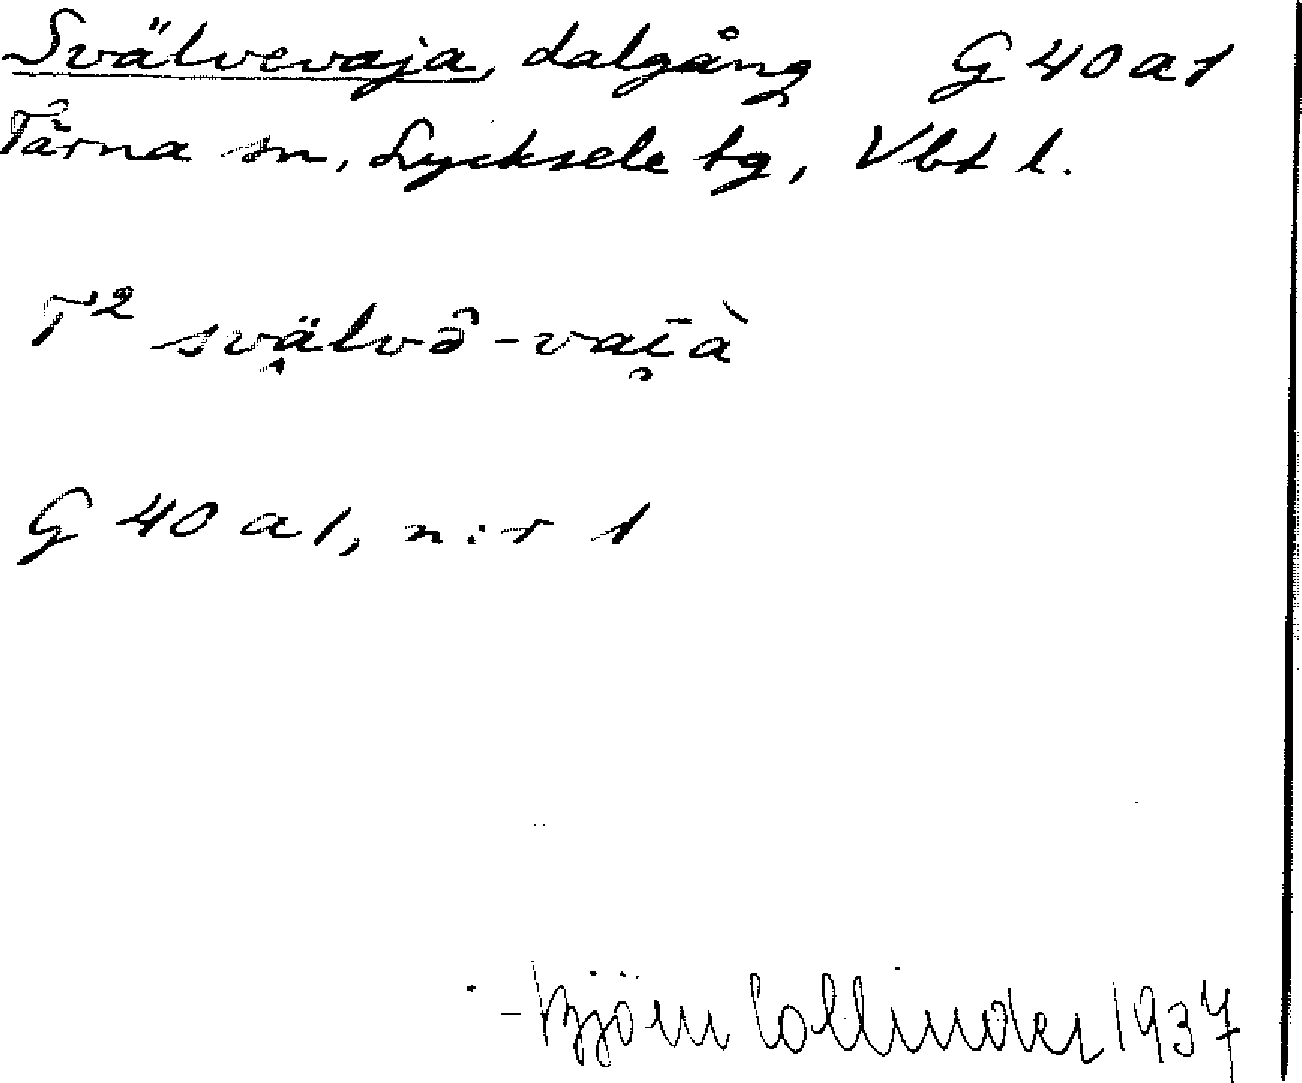 Svälvevaja, dalgång G 40 a 1
Tärna sn, Lycksele tg, Vbt l.
T² svälvô-vaīà
G 40 a 1, n:r 1
Björn Collinder 1937